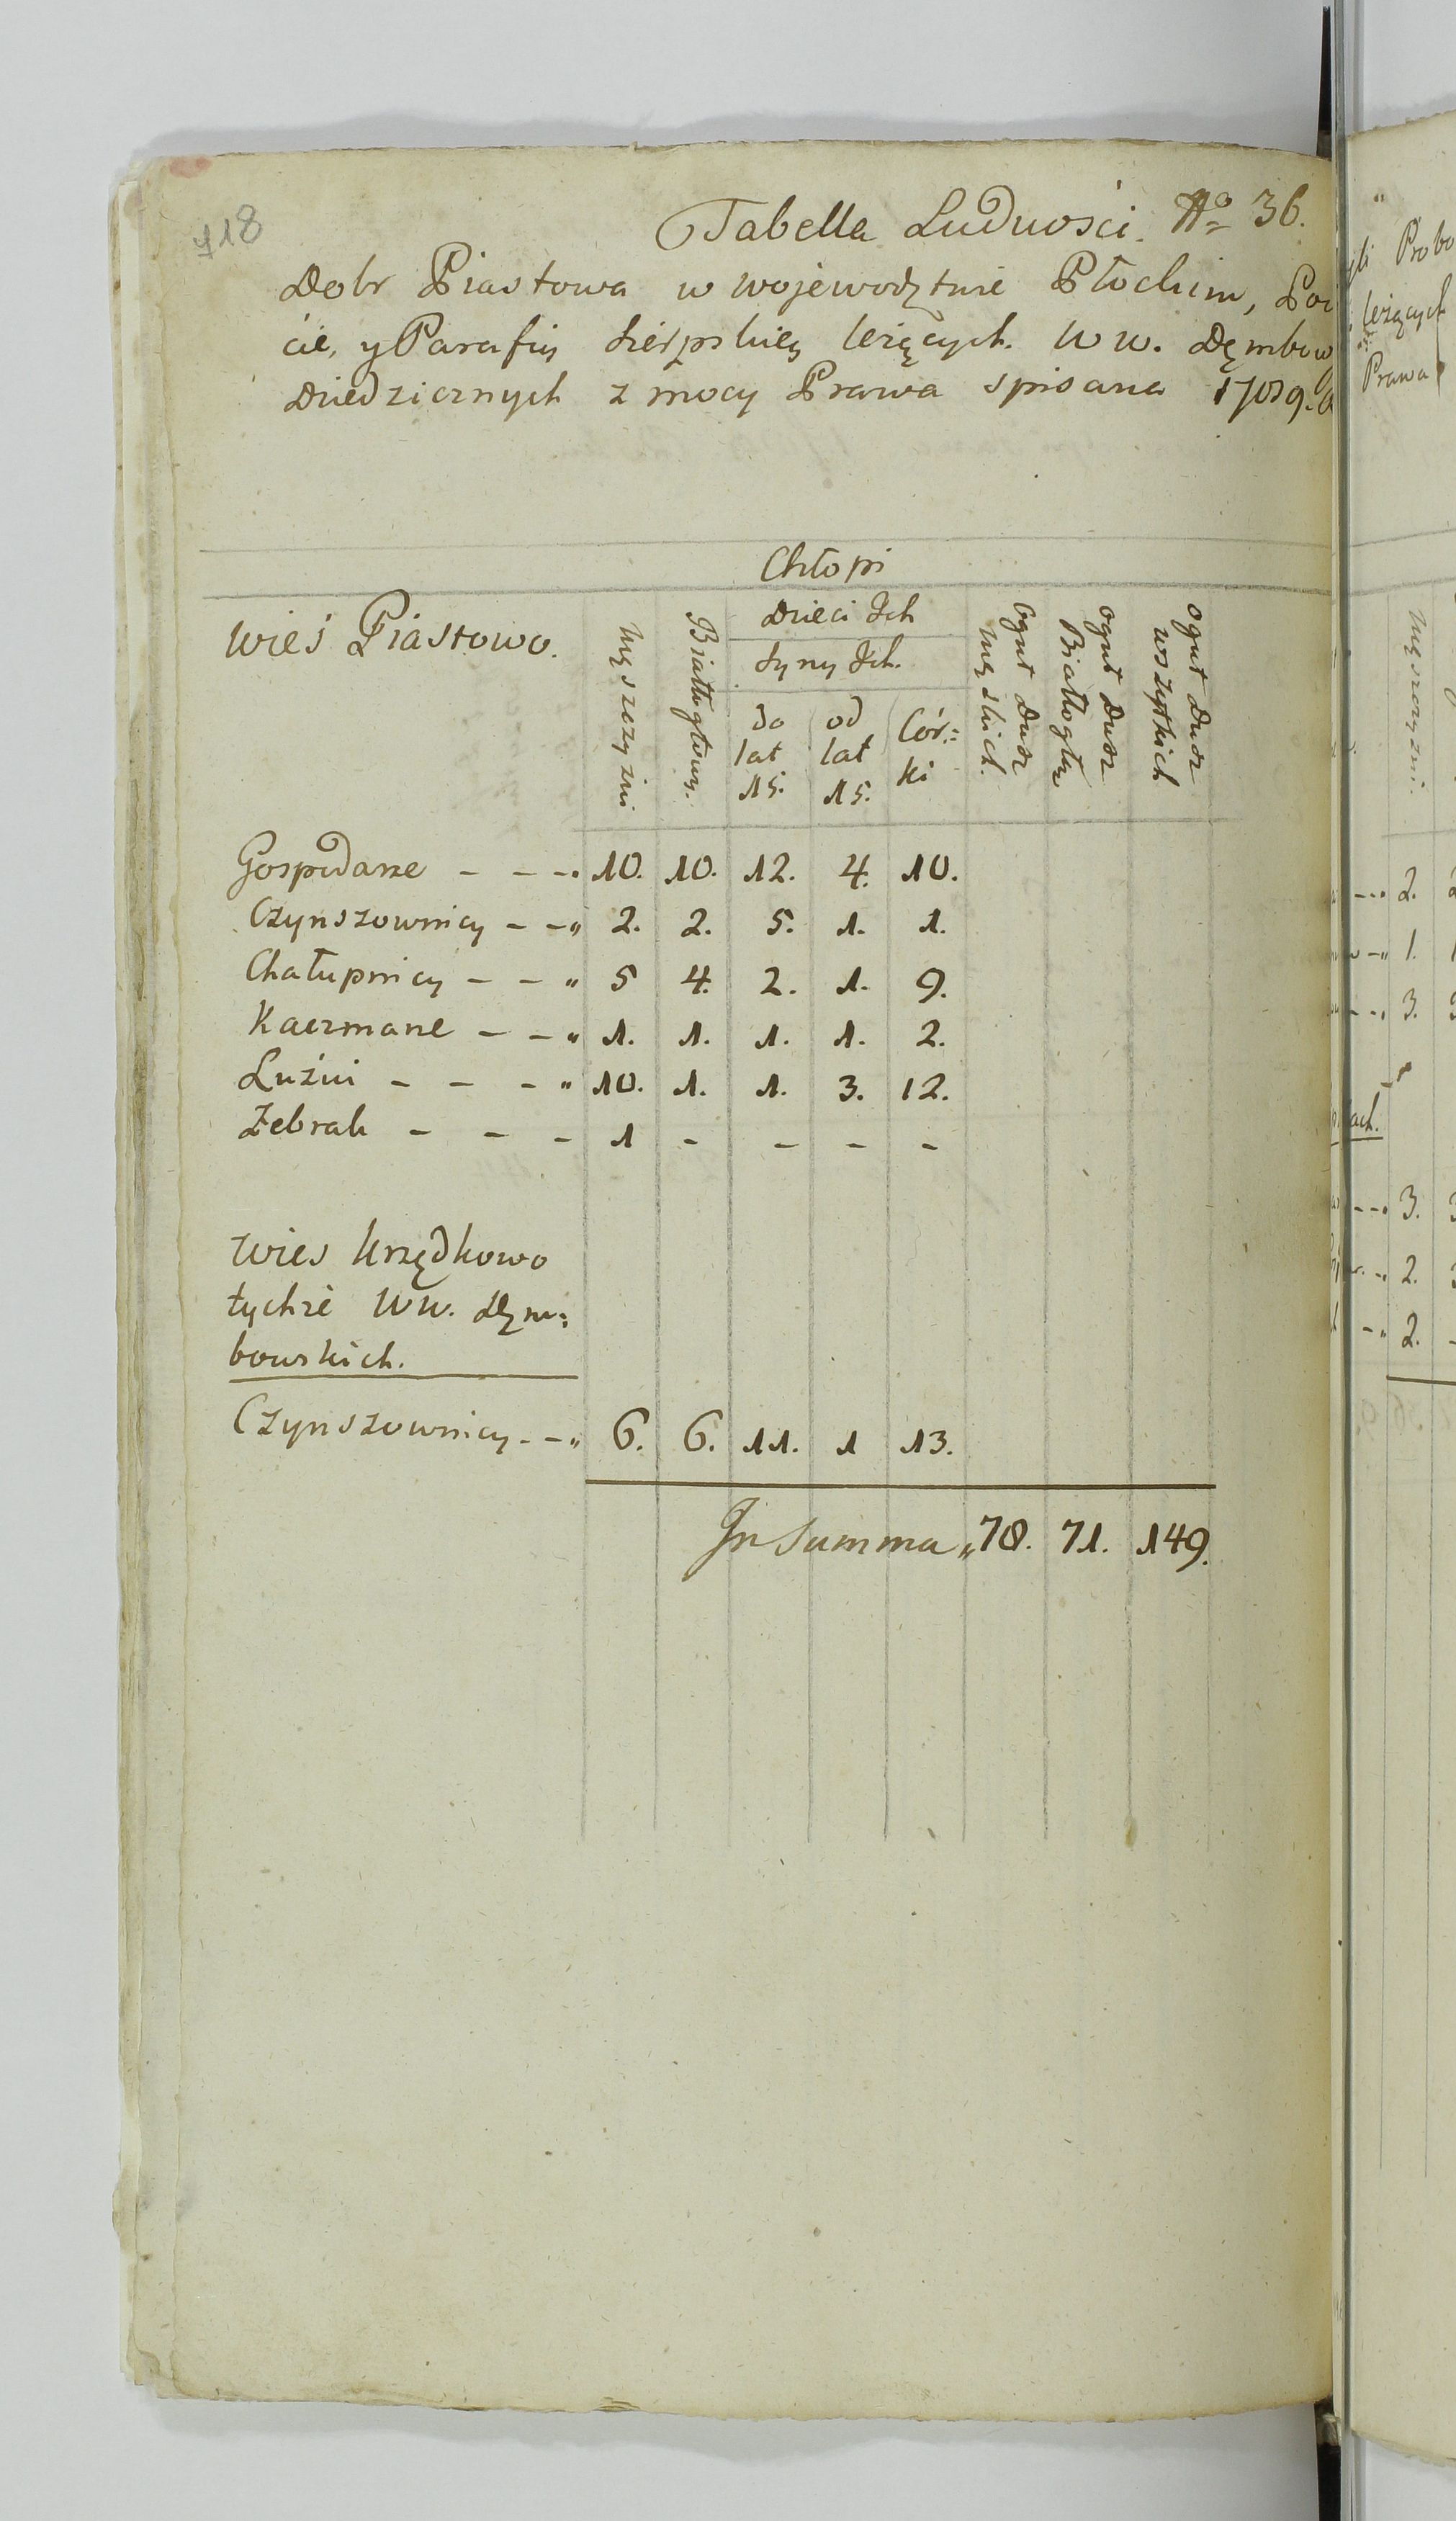 718
Tabella Ludności. No 36.
Dobr Piastowa w wojewodztwie Płockim, Pow
cie, y Parafij Sierpskiey leżących. W W. Dęmbow
Dziedzicznych z mocy Prawa spisana 1789.
Chłopi
wieś Piastowo.
Męszczyzni
Białłogłowy.
Dzieci Ich
Syny Ich.
do lat 15.
od lat 15.
Cór= ki
Oguł Dusz męskich.
oguł Dusz Białłogłw
oguł Dusz wszytkich
Gospodarze - - - 10. 10. 12. 4. 10.
Czynszownicy - - „ 2. 2. 5. 1. 1.
Chałupnicy - - „ 5 4. 2. 1. 9.
Kaczmarze - - „ 1. 1. 1. 1. 2.
Luźni - - - „ 10. 1. 1. 3. 12.
Żebrak - - - 1 - - - -
Wies Krzędkowo
tychże WW. Dęm=
bowskich.
Czynszownicy - - „ 6. 6. 11. 1 13.
In Summa „ 78. 71. 149.
Probo
leżących
Prawa
Męszczyzni.
2.
1.
3.
ach.
3.
2.
2.